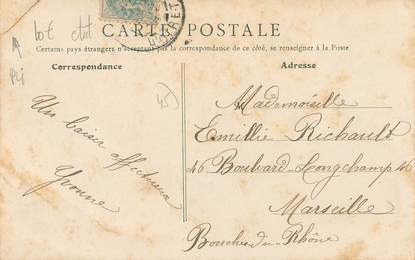 bon état
CARTE POSTALE
Certains pays étrangers n'acceptant pas la correspondance de ce côté, se renseigner à la Poste
Correspondance
Adresse
45
Un baiser affectueux
Yvonne
Mademoiselle
Emillie Richault
46 Boulvard Longchamp 46
Marseille
Bouches-du-Rhône